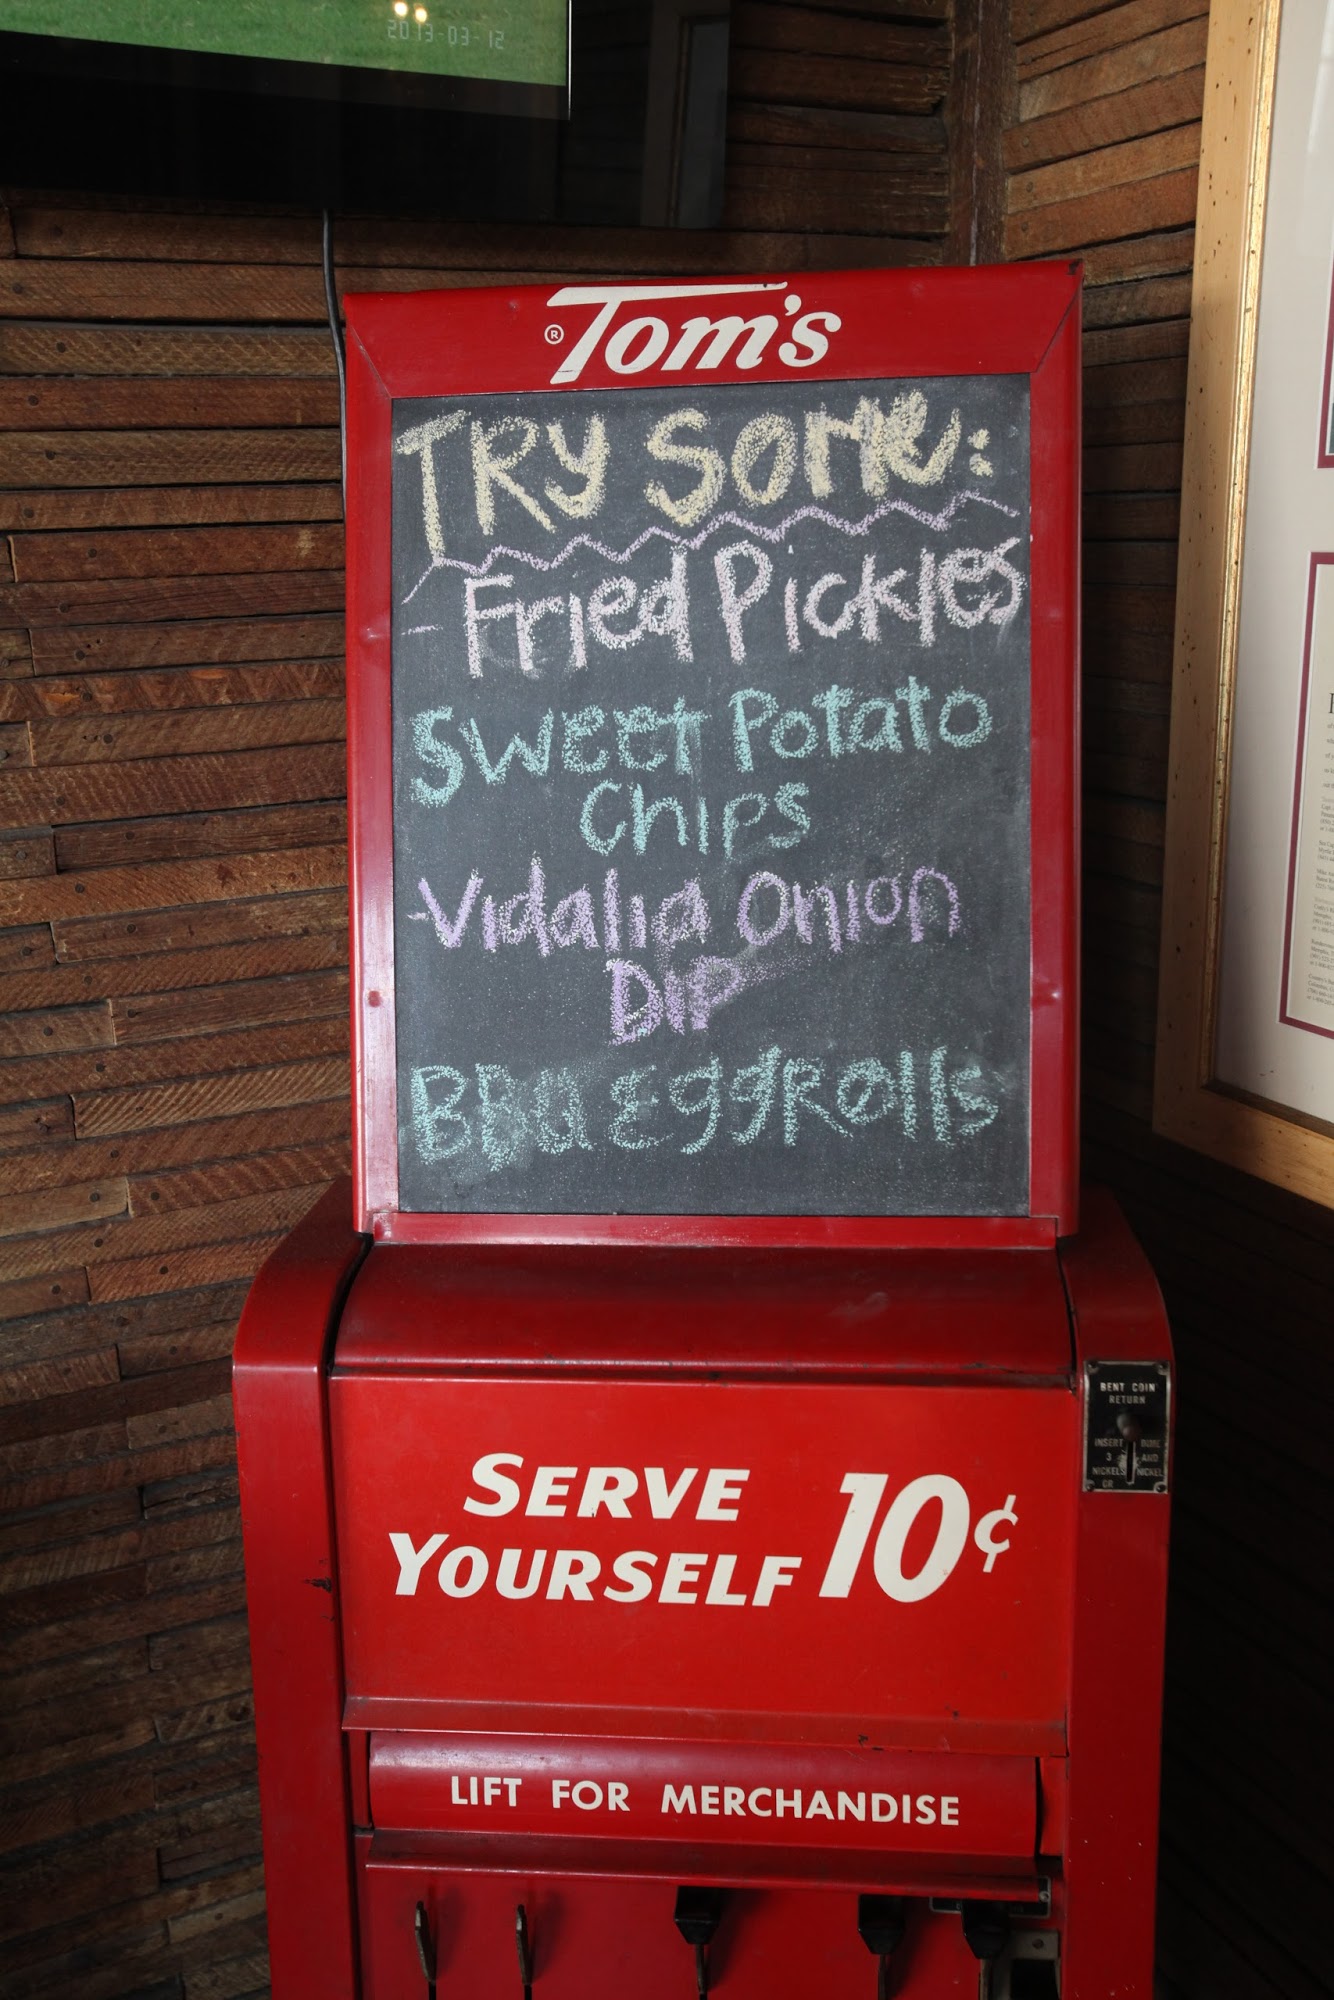 2013-03-12
®Tom's
TRY SOME:
- Fried Pickles
Sweet Potato
Chips
-Vidalia Onion
DIP
BBQ EggRolls
BENT COIN
RETURN
INSERT DIME
3 AND
NICKELS NICKEL
OR
SERVE
YOURSELF 10¢
LIFT FOR MERCHANDISE